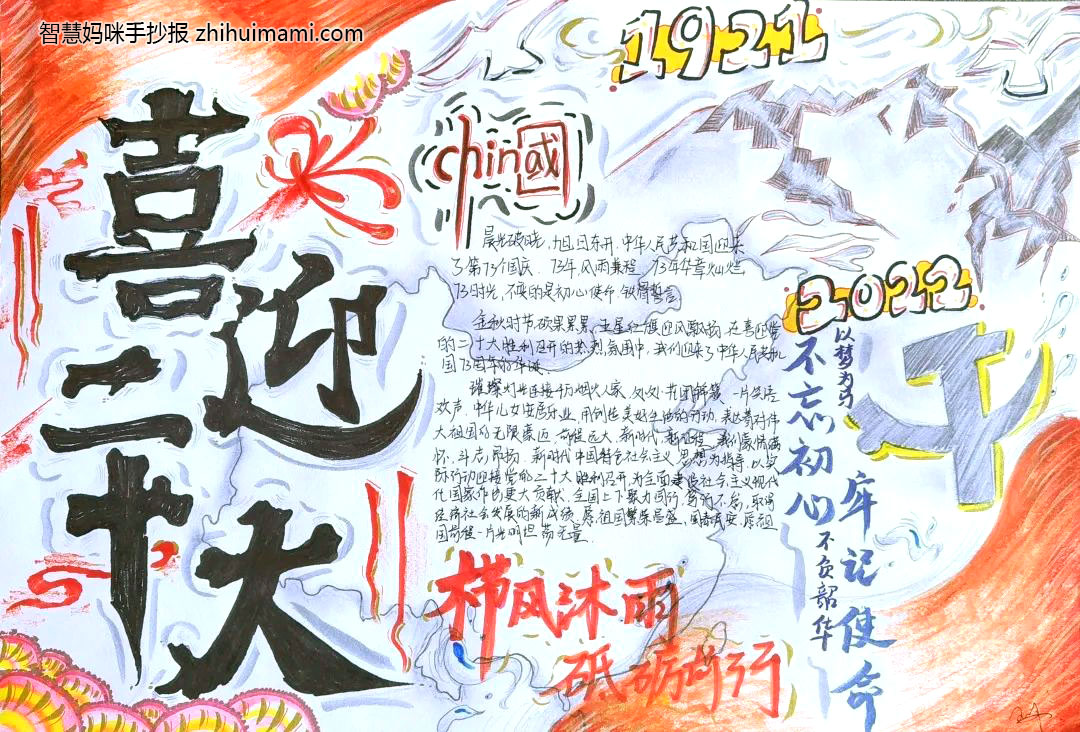 智慧妈咪手抄报 zhihuimami.com
1921
喜迎二十大
china國
晨光破晓，旭日东升，中华人民共和国迎来
了第73个国庆．73年风雨兼程，73年华章灿烂
73时光，不变的是初心使命，铁骨誓言
金秋时节，硕果累累，五星红旗迎风飘扬，在喜迎党
的二十大胜利召开的热烈氛围中，我们迎来了中华人民共和
国73周年的华诞．
璀璨灯光连接千万烟火人家，处处花团锦簇，一片欢语
欢声，中华儿女安居乐业，用创造美好生活的行动，表达着对伟
大祖国的无限豪迈，前程远大，新时代，新征程，我们豪情满
怀，斗志昂扬，新时代中国特色社会主义思想为指导，以实
际行动迎接党的二十大胜利召开，为全面建设社会主义现代
化国家作出更大贡献，全国上下聚力同行，笃行不怠，取得
经济社会发展的新成绩，愿祖国繁荣昌盛，国泰民安，愿祖
国前程一片光明坦荡无量．
栉风沐雨
砥砺前行
2022
以梦为马
不忘初心
不负韶华
牢记使命